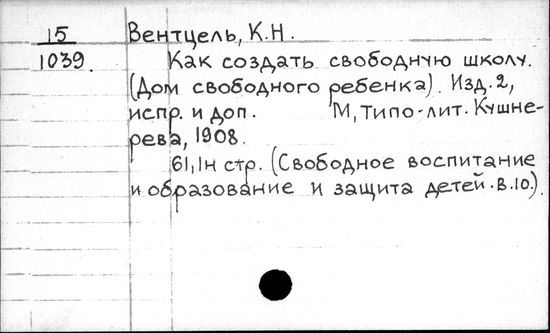 15
1039.
Вентцель, К.Н.
Как создать свободную школу.
(Дом свободного ребенка). Изд. 2,
испр. и доп. М, Типо-лит. Кушне-
рева, 1908.
61, 1н стр. (Свободное воспитание
и образование и защита детей. В.10.)